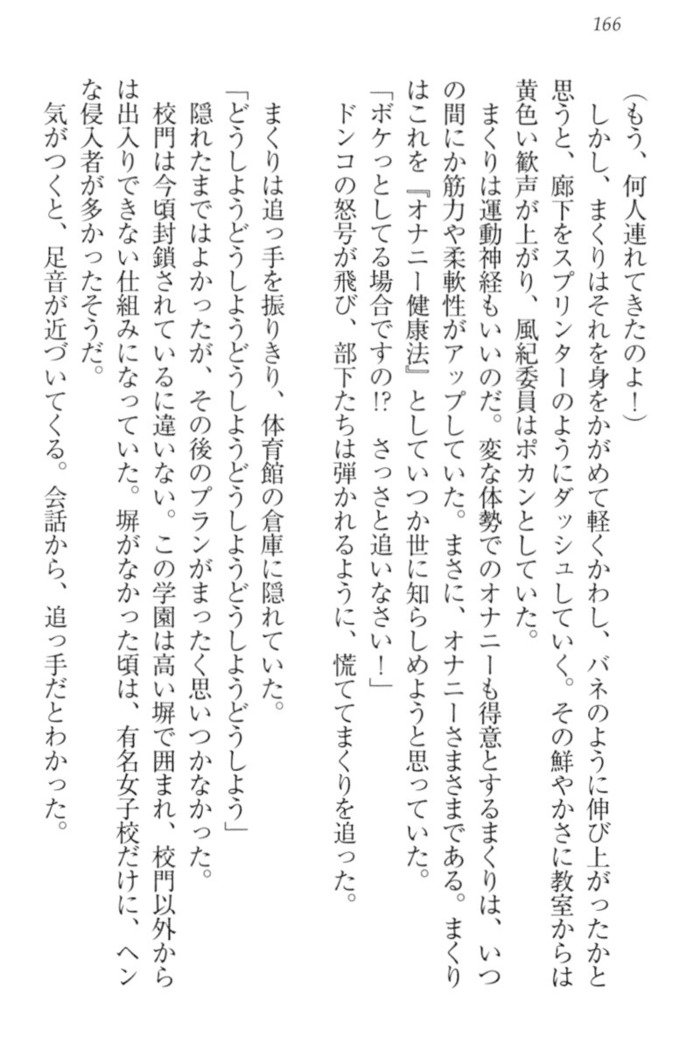 166
(もう、何人連れてきたのよ！)
しかし、まくりはそれを身をかがめて軽くかわし、バネのように伸び上がったかと
思うと、廊下をスプリンターのようにダッシュしていく。その鮮やかさに教室からは
黄色い歓声が上がり、風紀委員はポカンとしていた。
まくりは運動神経もいいのだ。変な体勢でのオナニーも得意とするまくりは、いつ
の間にか筋力や柔軟性がアップしていた。まさに、オナニーさまさまである。まくり
はこれを『オナニー健康法』としていつか世に知らしめようと思っていた。
「ボケっとしてる場合ですの!?　さっさと追いなさい！」
ドンコの怒号が飛び、部下たちは弾かれるように、慌ててまくりを追った。
まくりは追っ手を振りきり、体育館の倉庫に隠れていた。
「どうしようどうしようどうしようどうしようどうしよう」
隠れたまではよかったが、その後のプランがまったく思いつかなかった。
校門は今頃封鎖されているに違いない。この学園は高い塀で囲まれ、校門以外から
は出入りできない仕組みになっていた。塀がなかった頃は、有名女子校だけに、ヘン
な侵入者が多かったそうだ。
気がつくと、足音が近づいてくる。会話から、追っ手だとわかった。